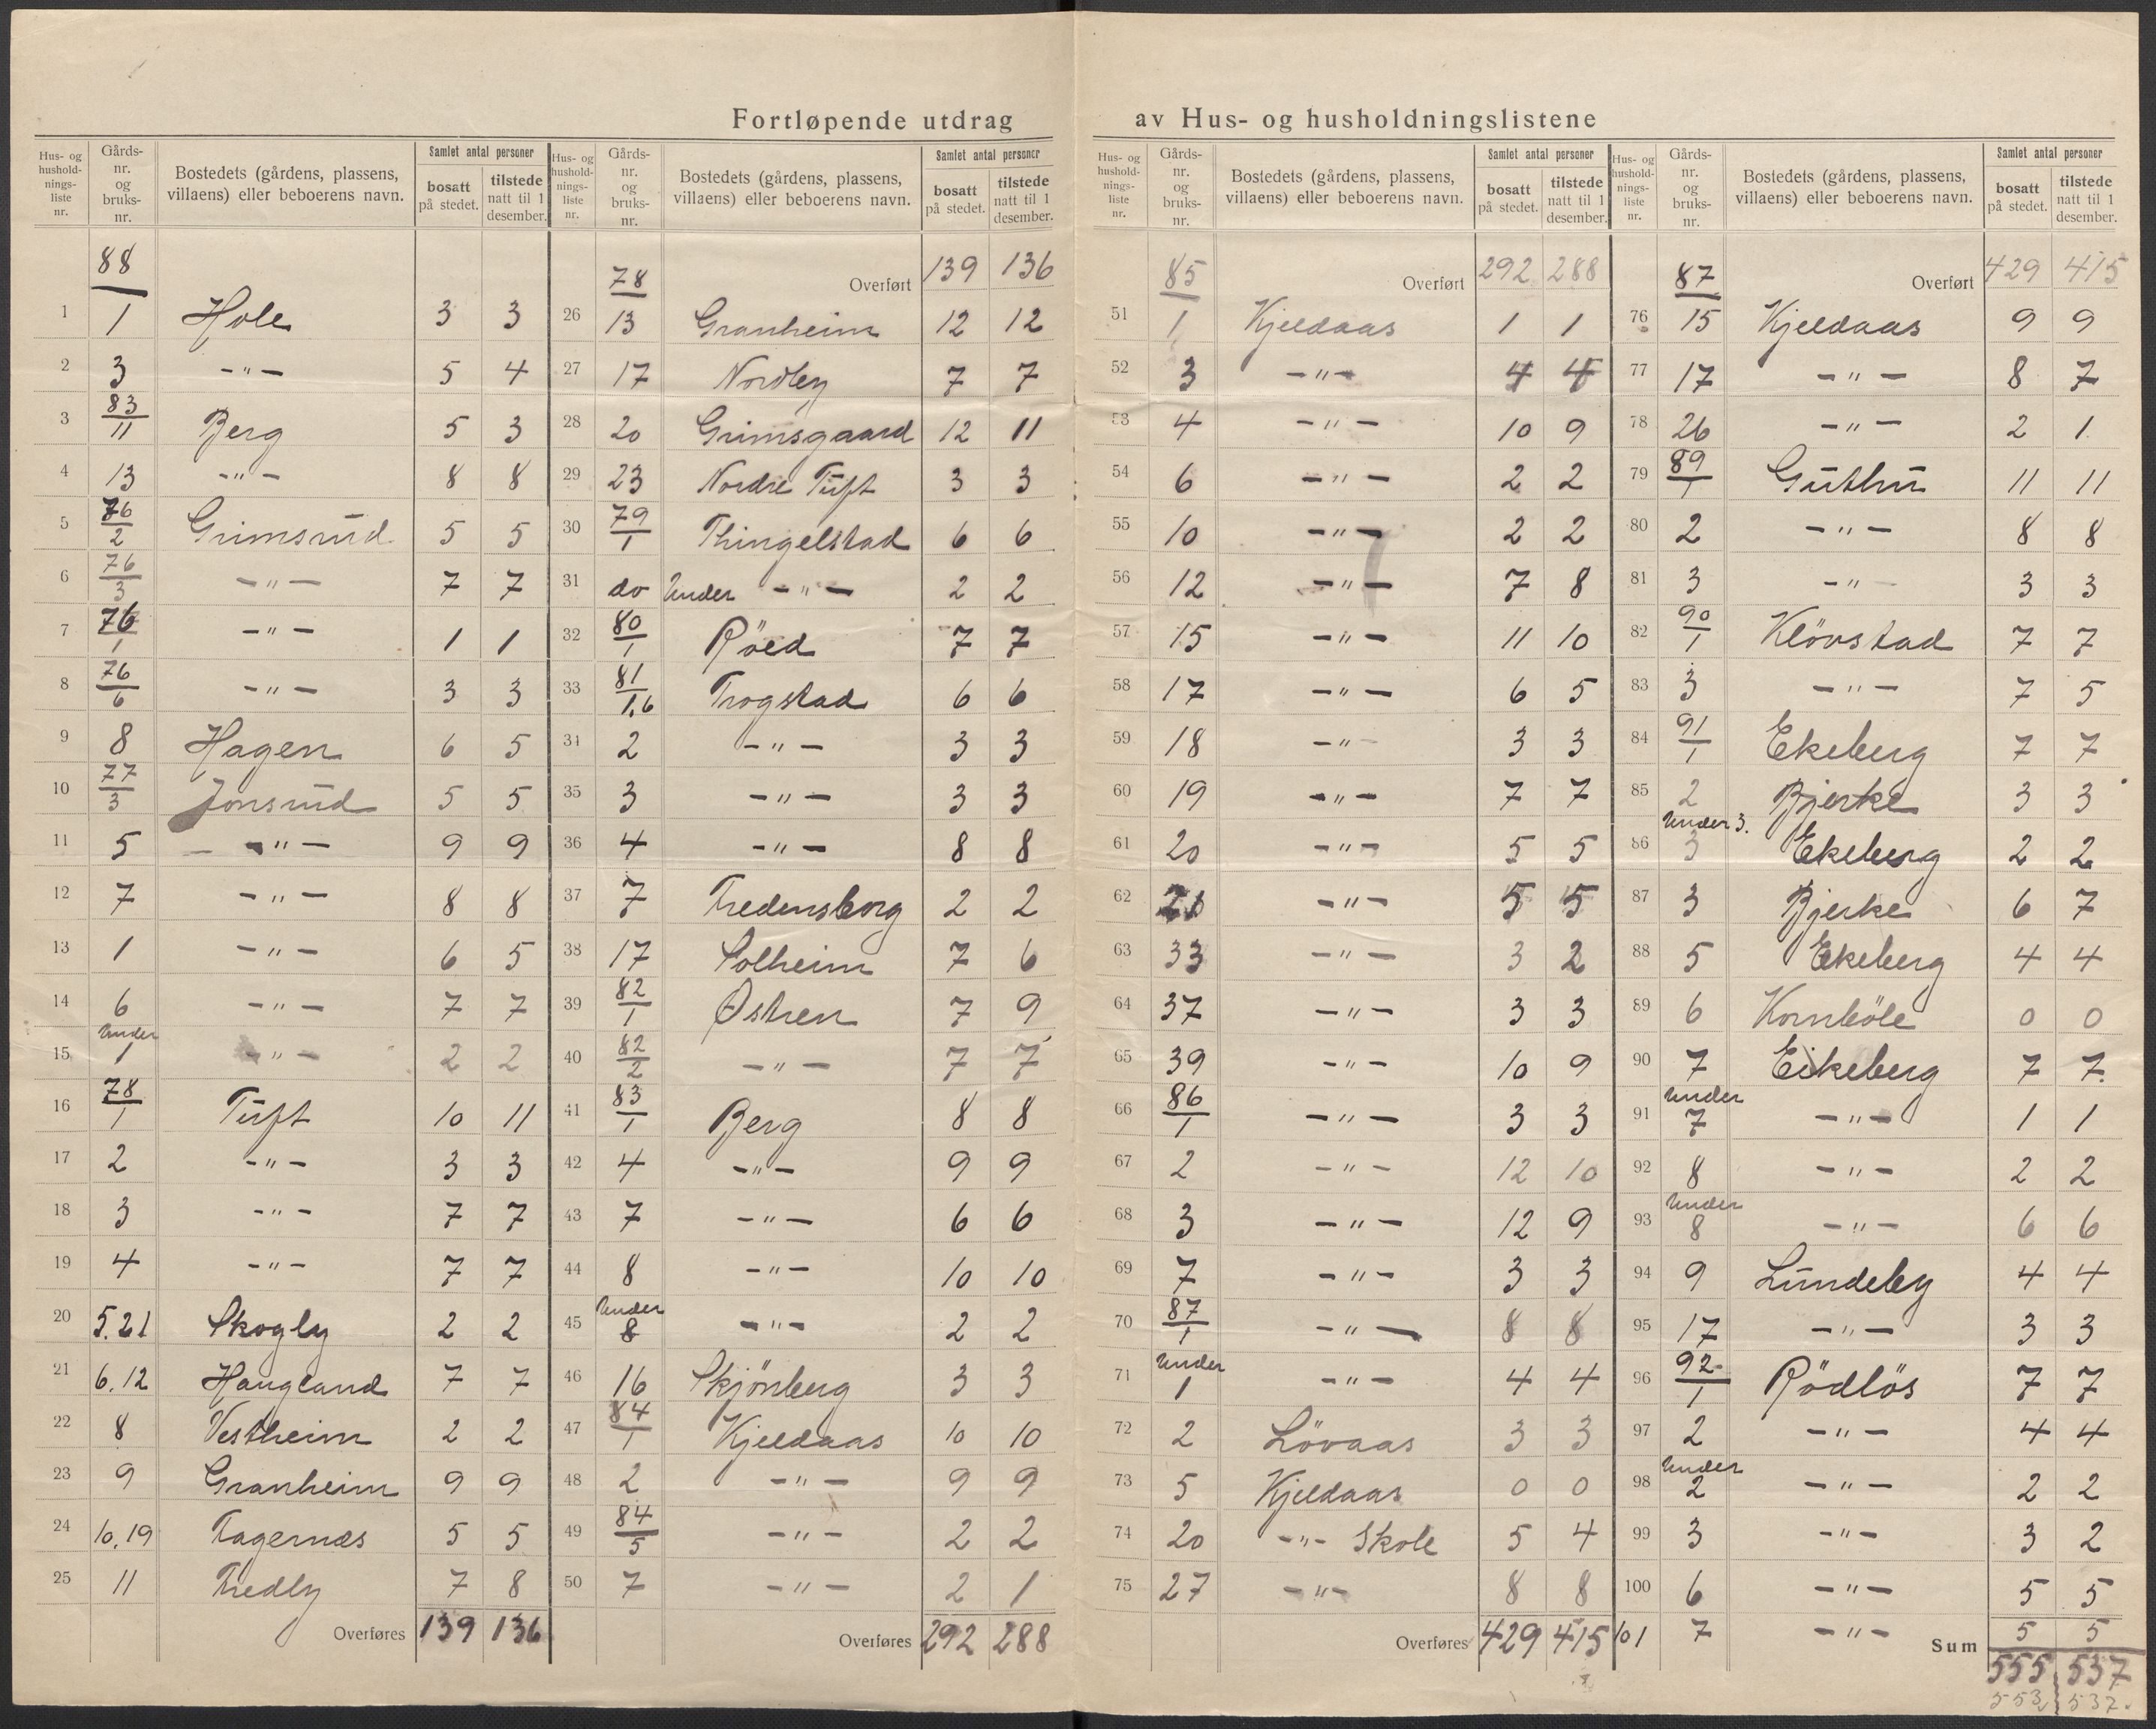 Fortløpende utdrag av Hus- og husholdningslistene
Hus- og hushold-nings-liste nr. | Gårds-nr. og bruks-nr. | Bostedets (gårdens, plassens, villaens) eller beboerens navn. | Samlet antal personer | bosatt på stedet. | tilstede natt til 1 desember.
88
1 | 1 | Hole | 3 | 3
2 | 3 | -"- | 5 | 4
3 | 83/11 | Berg | 5 | 3
4 | 13 | -"- | 8 | 8
5 | 76/2 | Grimsrud | 5 | 5
6 | 76/3 | -"- | 7 | 7
7 | 76/1 | -"- | 1 | 1
8 | 76/6 | -"- | 3 | 3
9 | 8 | Hagen | 6 | 5
10 | 77/3 | Jonsrud | 5 | 5
11 | 5 | -"- | 9 | 9
12 | 7 | -"- | 8 | 8
13 | 1 | -"- | 6 | 5
14 | 6 | -"- | 7 | 7
15 | Under 1 | -"- | 2 | 2
16 | 78/1 | Tuft | 10 | 11
17 | 2 | -"- | 3 | 3
18 | 3 | -"- | 7 | 7
19 | 4 | -"- | 7 | 7
20 | 5.21 | Skogly | 2 | 2
21 | 6.12 | Haugland | 7 | 7
22 | 8 | Vestheim | 2 | 2
23 | 9 | Granheim | 9 | 9
24 | 10.19 | Fagernæs | 5 | 5
25 | 11 | Fredly | 7 | 8
Overføres | 139 | 136
Hus- og hushold-nings-liste nr. | Gårds-nr. og bruks-nr. | Bostedets (gårdens, plassens, villaens) eller beboerens navn. | Samlet antal personer | bosatt på stedet. | tilstede natt til 1 desember.
78 | Overført | 139 | 136
26 | 13 | Granheim | 12 | 12
27 | 17 | Nordby | 7 | 7
28 | 20 | Grimsgaard | 12 | 11
29 | 23 | Nordre Tuft | 3 | 3
30 | 79/1 | Thingelstad | 6 | 6
31 | do | Under -"- | 2 | 2
32 | 80/1 | Röed | 7 | 7
33 | 81/1,6 | Trogstad | 6 | 6
34 | 2 | -"- | 3 | 3
35 | 3 | -"- | 3 | 3
36 | 4 | -"- | 8 | 8
37 | 7 | Fredensborg | 2 | 2
38 | 17 | Solheim | 7 | 6
39 | 82/1 | Østren | 7 | 9
40 | 82/2 | -"- | 7 | 7
41 | 83/1 | Berg | 8 | 8
42 | 4 | -"- | 9 | 9
43 | 7 | -"- | 6 | 6
44 | 8 | -"- | 10 | 10
45 | Under 8 | -"- | 2 | 2
46 | 16 | Skjönberg | 3 | 3
47 | 84/1 | Kjeldaas | 10 | 10
48 | 2 | -"- | 9 | 9
49 | 84/5 | -"- | 2 | 2
50 | 7 | -"- | 2 | 1
Overføres | 292 | 288
Hus- og hushold-nings-liste nr. | Gårds-nr. og bruks-nr. | Bostedets (gårdens, plassens, villaens) eller beboerens navn. | Samlet antal personer | bosatt på stedet. | tilstede natt til 1 desember.
85 | Overført | 292 | 288
51 | 1 | Kjeldaas | 1 | 1
52 | 3 | -"- | 4 | 4
53 | 4 | -"- | 10 | 9
54 | 6 | -"- | 2 | 2
55 | 10 | -"- | 2 | 2
56 | 12 | -"- | 7 | 8
57 | 15 | -"- | 11 | 10
58 | 17 | -"- | 6 | 5
59 | 18 | -"- | 3 | 3
60 | 19 | -"- | 7 | 7
61 | 20 | -"- | 5 | 5
62 | 21 | -"- | 5 | 5
63 | 33 | -"- | 3 | 2
64 | 37 | -"- | 3 | 3
65 | 39 | -"- | 10 | 9
66 | 86/1 | -"- | 3 | 3
67 | 2 | -"- | 12 | 10
68 | 3 | -"- | 12 | 9
69 | 7 | -"- | 3 | 3
70 | 87/1 | -"- | 8 | 8
71 | Under 1 | -"- | 4 | 4
72 | 2 | Lövaas | 3 | 3
73 | 5 | Kjeldaas | 0 | 0
74 | 20 | -"- Skole | 5 | 4
75 | 27 | -"- | 8 | 8
Overføres | 429 | 415
Hus- og hushold-nings-liste nr. | Gårds-nr. og bruks-nr. | Bostedets (gårdens, plassens, villaens) eller beboerens navn. | Samlet antal personer | bosatt på stedet. | tilstede natt til 1 desember.
87 | Overført | 429 | 415
76 | 15 | Kjeldaas | 9 | 9
77 | 17 | -"- | 8 | 7
78 | 26 | -"- | 2 | 1
79 | 89/1 | Guthu | 11 | 11
80 | 2 | -"- | 8 | 8
81 | 3 | -"- | 3 | 3
82 | 90/1 | Klövstad | 7 | 7
83 | 3 | -"- | 7 | 5
84 | 91/1 | Ekeberg | 7 | 7
85 | 2 | Bjerke | 3 | 3
86 | Under 3. 3 | Ekeberg | 2 | 2
87 | 3 | Bjerke | 6 | 7
88 | 5 | Ekeberg | 4 | 4
89 | 6 | Kornböle | 0 | 0
90 | 7 | Eikeberg | 7 | 7
91 | Under 7 | -"- | 1 | 1
92 | 8 | -"- | 2 | 2
93 | Under 8 | -"- | 6 | 6
94 | 9 | Lundeby | 4 | 4
95 | 17 | -"- | 3 | 3
96 | 92/1 | Rödlös | 7 | 7
97 | 2 | -"- | 4 | 4
98 | Under 2 | -"- | 2 | 2
99 | 3 | -"- | 3 | 2
100 | 6 | -"- | 5 | 5
101 | 7 | -"- | 5 | 5
Sum | 555 | 537
553 | 537.